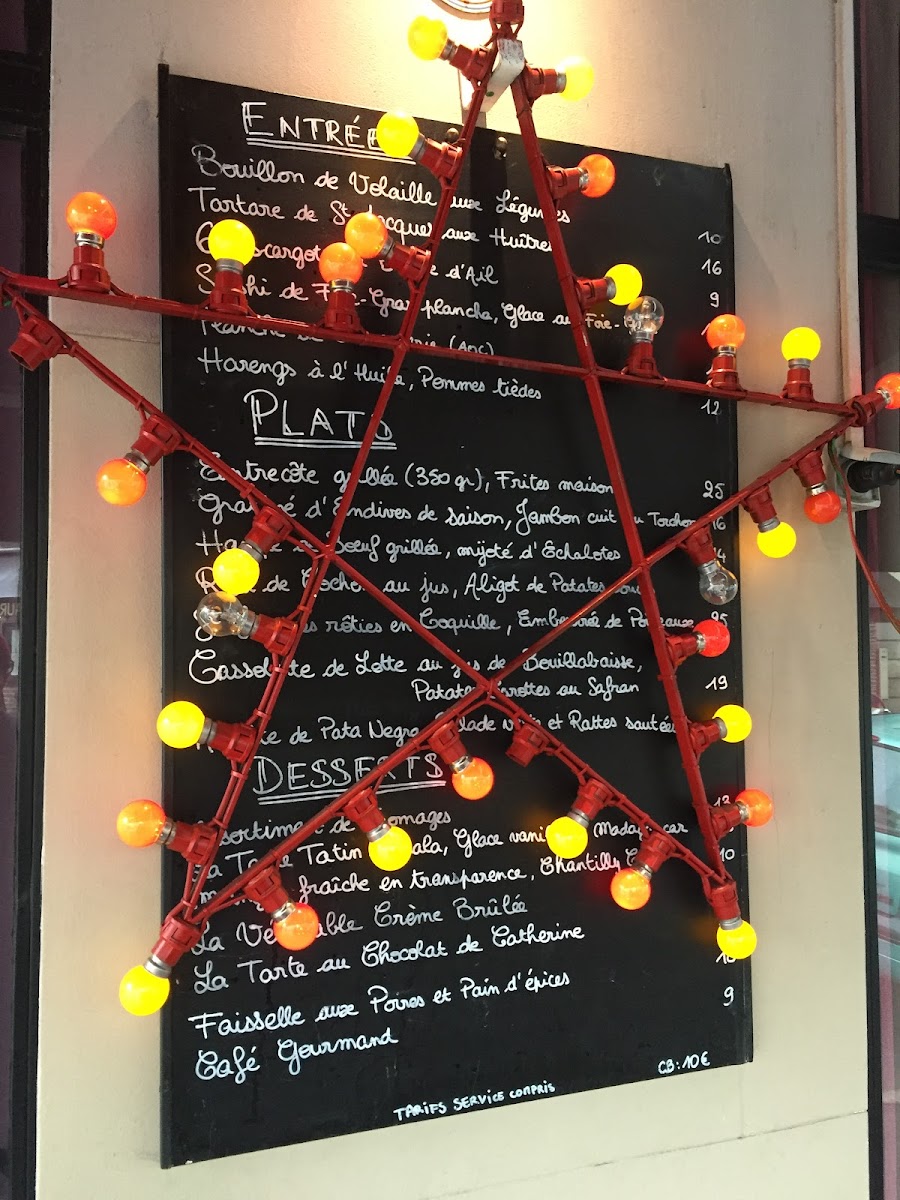 ENTRÉE
Bouillon de Volaille aux Légumes
Tartare de St Jacques aux Huîtres 10
d'Ail 16
de plancha, Glace au Foie- 9
(AOC)
Harengs à l'Huile, Pommes tièdes
12
PLATS
Entrecôte grillée (350 gr), Frites maison 25
d'Endives de saison, Jambon cuit au Torchon 16
de Boeuf grillée, mijoté d'Échalotes
de Cochon au jus, Aligot de Patates
rôties en Coquille, Embeurrée de Poireaux 25
Cassolette de Lotte au jus de Bouillabaisse,
Patates Carottes au Safran 19
de Pata Negra, Salade et Rattes sautées
DESSERTS
Assortiment de Fromages
La Tarte Tatin Glace vanille Madagascar
fraîche en transparence, Chantilly 10
La Véritable Crème Brûlée
La Tarte au Chocolat de Catherine
Faisselle aux Poires et Pain d'épices 9
Café Gourmand
CB: 10€
TARIFS SERVICE COMPRIS